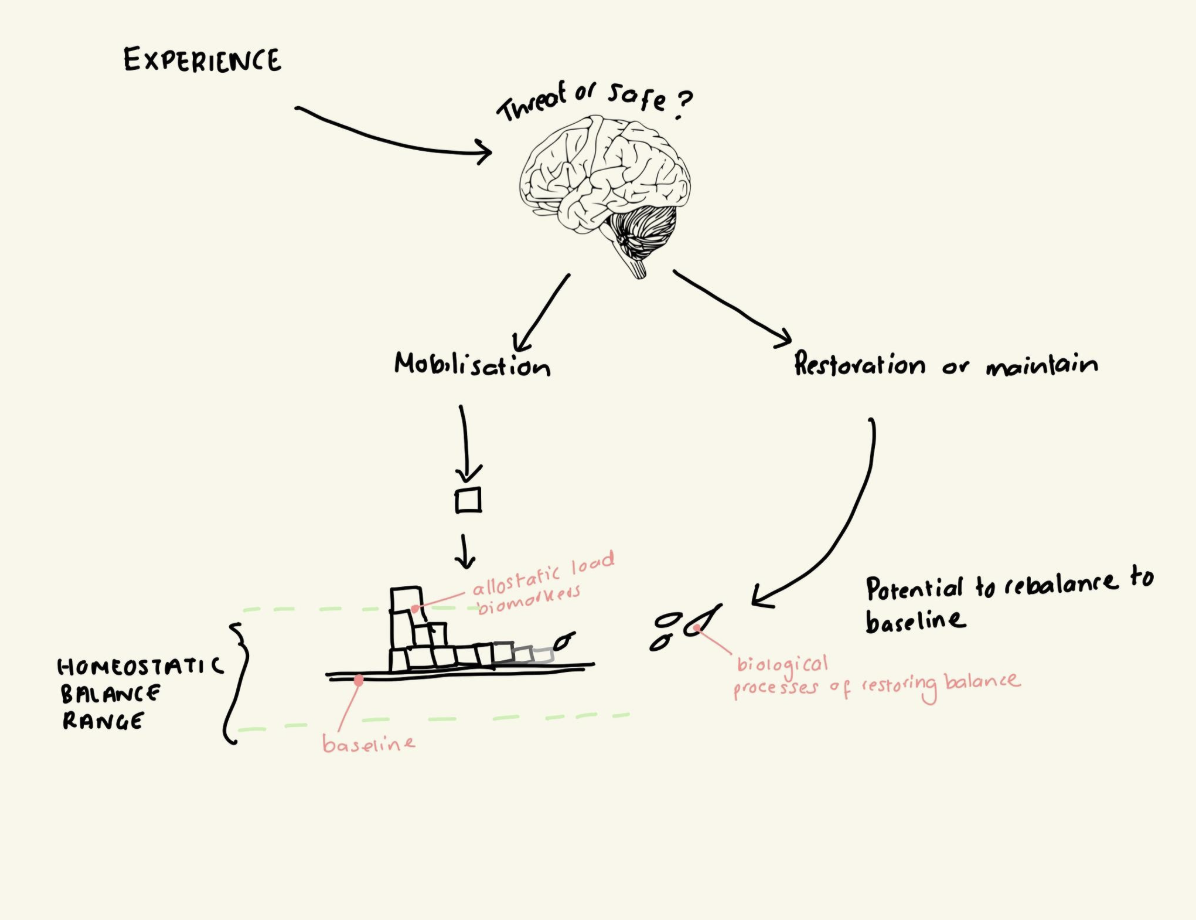 EXPERIENCE
Threat or safe?
Mobilisation
Restoration or maintain
allostatic load
biomarkers
Potential to rebalance to
baseline
HOMEOSTATIC
BALANCE
RANGE
biological
processes of restoring balance
baseline